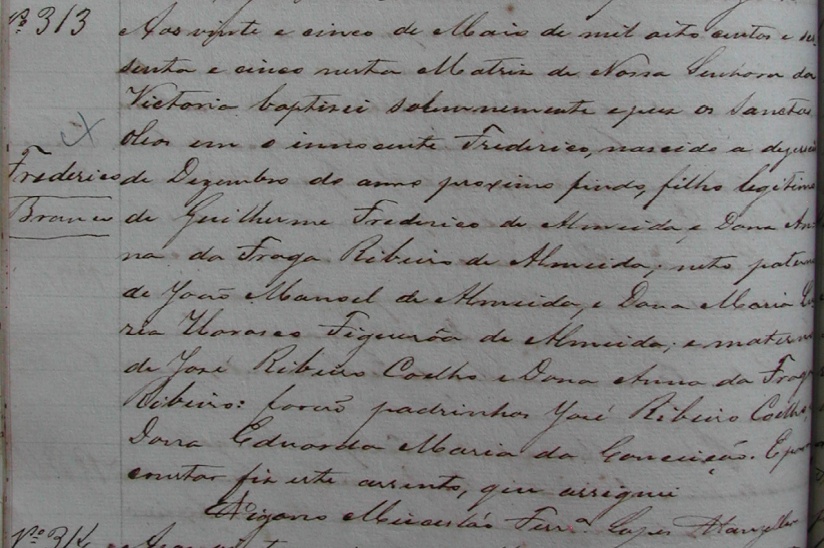 Nº 313
Frederico
Branco
Aos vinte e cinco de Maio de mil oito centos e ses
senta e cinco nesta Matriz de Nossa Senhora da
Victoria baptisei solemnemente e puz os Sanctos
oleos em o innocente Frederico, nascido a
de Dezembro do anno proximo findo, filho legitimo
de Guilherme Frederico de Almeida, e Dona An
na da Fraga Ribeiro de Almeida; neto paterno
de João Manoel de Almeida, e Dona Maria
Figuerôa de Almeida; e materno
de José Ribeiro Coelho e Dona Anna da Fraga
Ribeiro: forão padrinhos José Ribeiro Coelho,
Dona Eduarda Maria da Conceição. E para
constar fiz este assento, que assignei
Ferrª Lopes
Nº 314